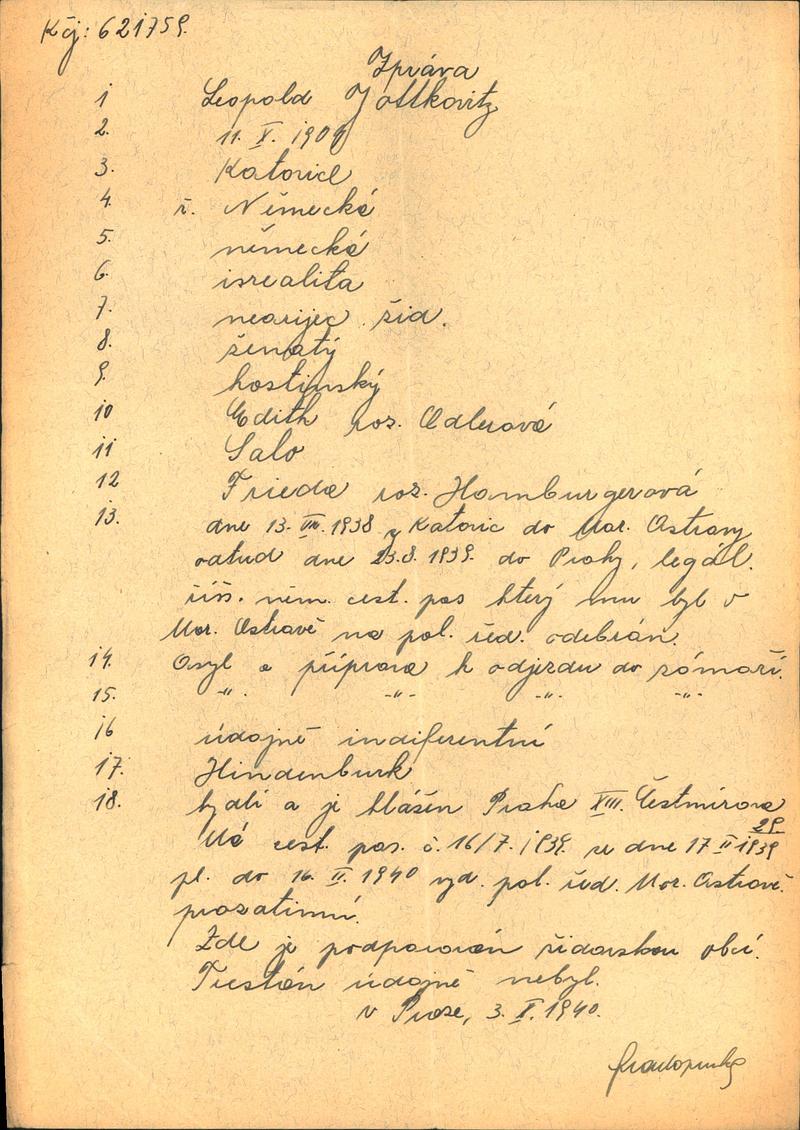 Kčj: 621759.
Zpráva
1 Leopold Jottkovitz
2. 11. V. 1909
3. Katovice
4. ř. Německá
5. německá
6. isrealita
7. nearijec žid.
8. ženatý
9. hostinský
10 Edith roz. Adlerová
11 Salo
12 Frieda roz. Hamburgerová
13. dne 13. VIII. 1938 z Katovic do Mor. Ostravy
odtud dne 23.8. 1939. do Prahy, legál.
říš. něm. cest. pas který mu byl v
Mor. Ostravě na pol. řed. odebrán.
14. Asyl a příprava k odjezdu do zámoří.
15. -"- -"- -"- -"-
16 údajně indiferentní
17. Hindenburk
18. bydlí a je hlášen Praha XIII. Čestmírova
29.
Má cest. pas. č. 16/7. 1939. ze dne 17 II 1939
pl. do 16. II. 1940 vyd. pol. řed. Mor. Ostravě.
prozatimní.
Zde je podporován židovskou obcí.
Trestán údajně nebyl.
v Praze, 3. I. 1940.